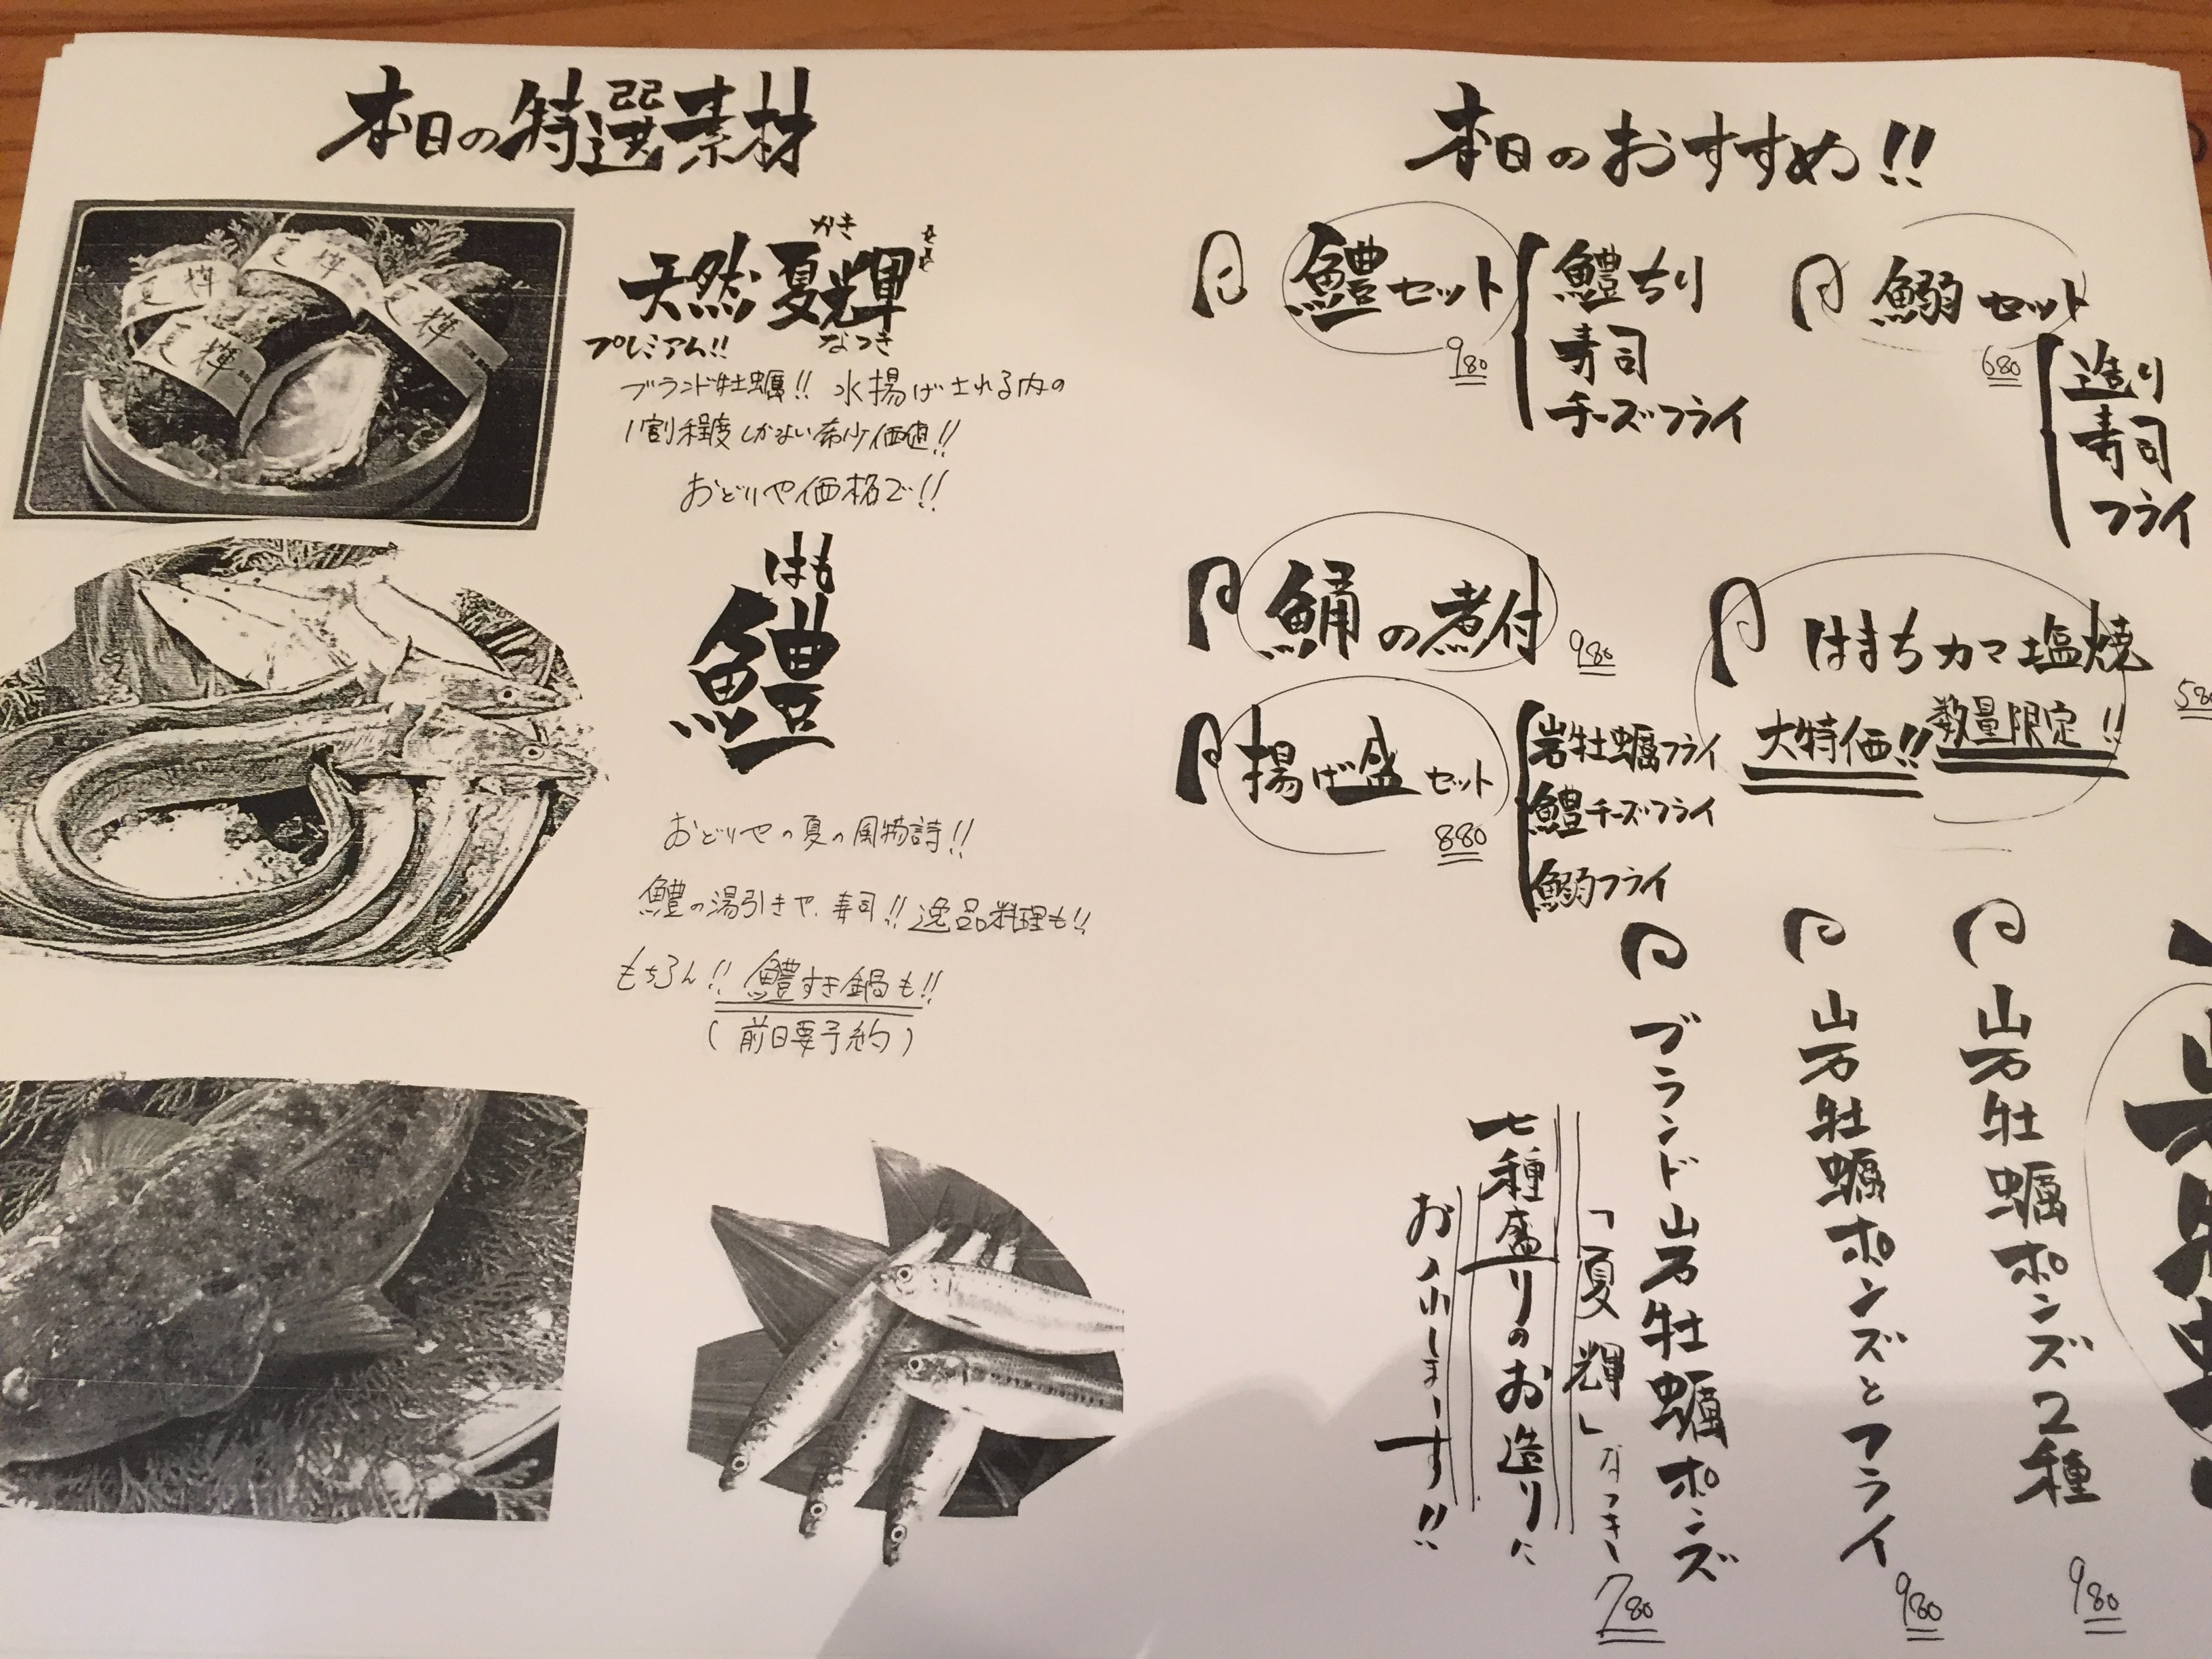 本日の特選素材
かき
天然夏輝
プレミアム!!
なつき
ブランド牡蠣!! 水揚げされる内の
1割程度しかない希少価値!!
おどりや価格で!!
はも
鱧
おどりやの夏の風物詩!!
鱧の湯引きや、寿司!! 逸品料理も!!
もちろん!! 鱧すき鍋も!!
(前日要予約)
本日のおすすめ!!
鱧セット
980
鱧ちり
寿司
チーズフライ
鰯セット
680
造り
寿司
フライ
の煮付
980
はまちカマ塩焼
大特価!! 数量限定!!
揚げ盛セット
880
岩牡蠣フライ
鱧チーズフライ
鰯フライ
岩牡蠣ポンズ2種
980
岩牡蠣ポンズとフライ
980
ブランド岩牡蠣ポンズ
「夏輝」なつき
780
七種盛りのお造りに